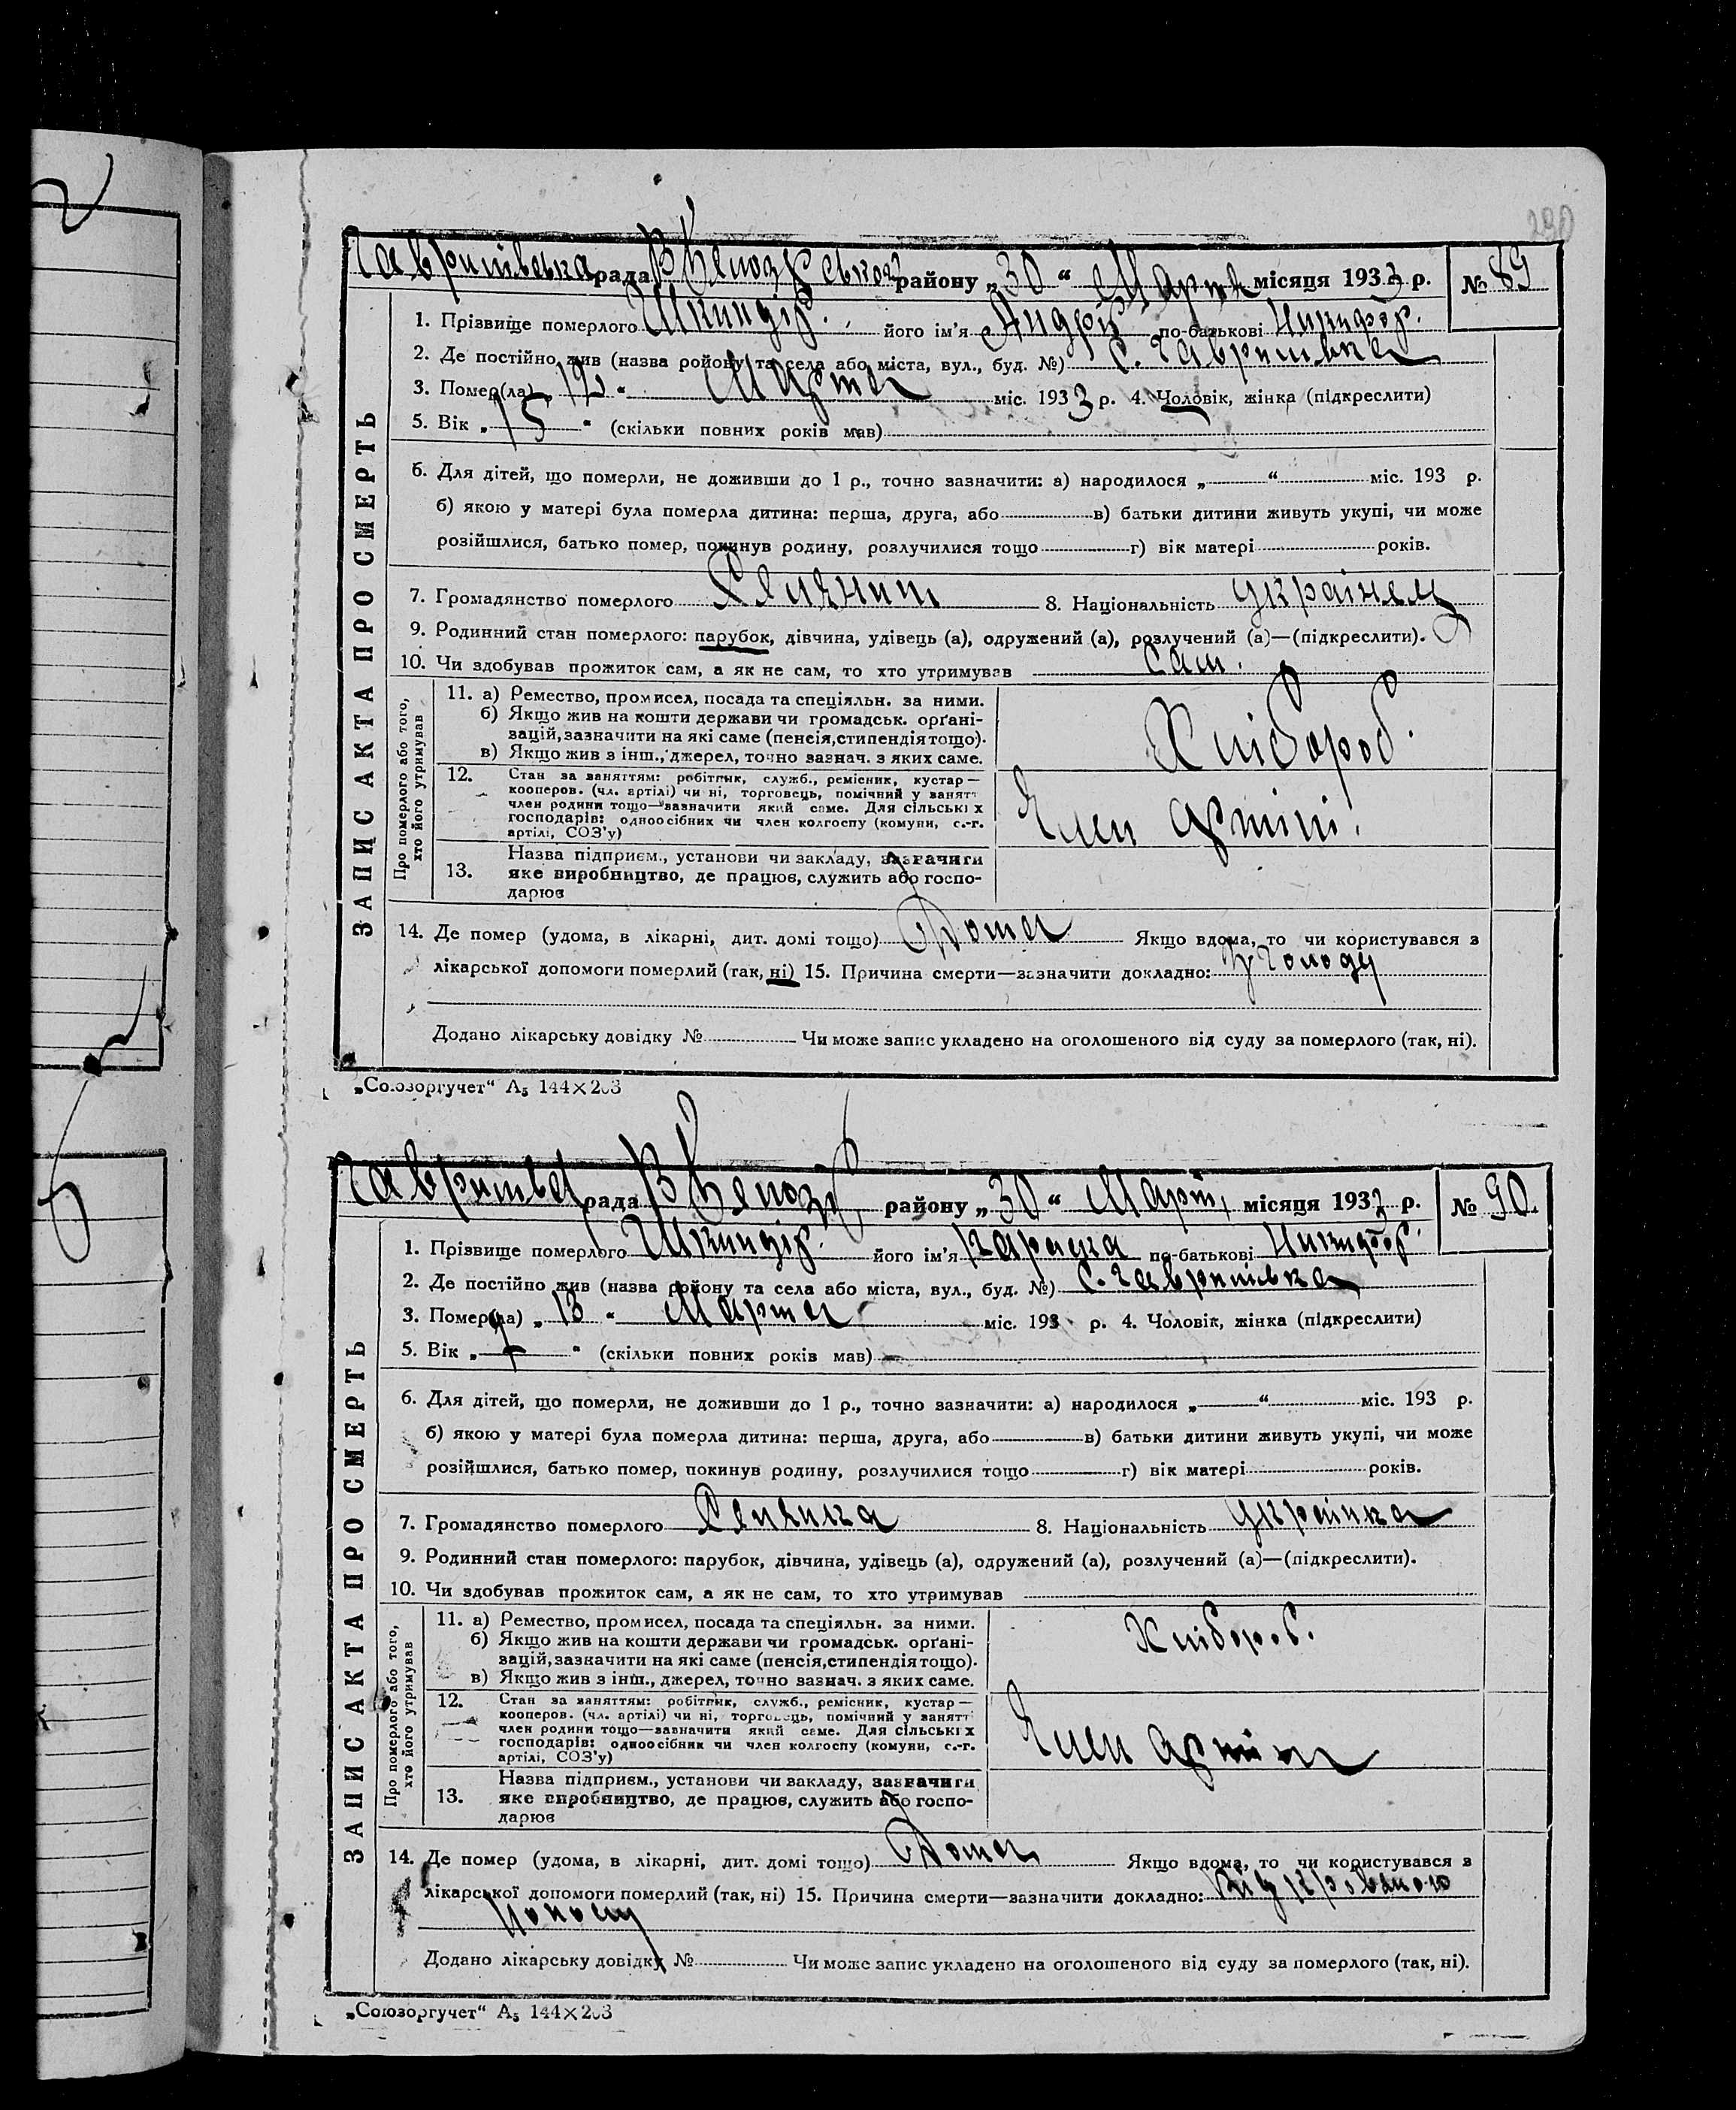 290
Гавришівська рада Вкепозгсвкого району „30“ Марта місяця 1933 р. № 89
1. Прізвище померлого Шкиндір. його ім'я Андрій по-батькові Никифор.
2. Де постійно жив (назва району та села або міста, вул., буд. №) С. Гавришівка
3. Помер(ла) „12“ Марта міс. 1933 р. 4. Чоловік, жінка (підкреслити)
5. Вік „15“ (скільки повних років мав)
6. Для дітей, що померли, не доживши до 1 р., точно зазначити: а) народилося „ “ міс. 193 р.
б) якою у матері була померла дитина: перша, друга, або в) батьки дитини живуть укупі, чи може
розійшлися, батько помер, покинув родину, розлучилися тощо г) вік матері років.
7. Громадянство померлого Селянин 8. Національність Українец
9. Родинний стан померлого: парубок, дівчина, удівець (а), одружений (а), розлучений (а)—(підкреслити).
10. Чи здобував прожиток сам, а як не сам, то хто утримував Сам.
ЗАПИС АКТА ПРО СМЕРТЬ
Про померлого або того,
хто його утримував
11. а) Ремество, промисел, посада та спеціяльн. за ними.
б) Якщо жив на кошти держави чи громадськ. орґані-
зацій, зазначити на які саме (пенсія, стипендія тощо).
в) Якщо жив з інш., джерел, точно зазнач. з яких саме.
Хлібороб.
12. Стан за заняттям: робітник, служб., ремісник, кустар—
кооперов. (чл. артілі) чи ні, торговець, помічний у занятт
член родини тощо—зазначити який саме. Для сільських
господарів: одноосібник чи член колгоспу (комуни, с.-г.
артілі, СОЗ'у)
Член артілі.
13. Назва підприєм., установи чи закладу, зазначити
яке виробництво, де працює, служить або госпо-
дарює
14. Де помер (удома, в лікарні, дит. домі тощо) Дома Якщо вдома, то чи користувався з
лікарської допомоги померлий (так, ні) 15. Причина смерти—зазначити докладно: З голоду
Додано лікарську довідку № Чи може запис укладено на оголошеного від суду за померлого (так, ні).
„Союзоргучет“ А5 144×203
Гавришівса рада району „30“ Март, місяця 1933 р. № 90.
1. Прізвище померлого Шкиндір. його ім'я по-батькові Никифор.
2. Де постійно жив (назва району та села або міста, вул., буд. №) С. Гавришівка
3. Помер(ла) „13“ Марта міс. 193 р. 4. Чоловік, жінка (підкреслити)
5. Вік „7“ (скільки повних років мав)
6. Для дітей, що померли, не доживши до 1 р., точно зазначити: а) народилося „ “ міс. 193 р.
б) якою у матері була померла дитина: перша, друга, або в) батьки дитини живуть укупі, чи може
розійшлися, батько помер, покинув родину, розлучилися тощо г) вік матері років.
7. Громадянство померлого Селянка 8. Національність Українка
9. Родинний стан померлого: парубок, дівчина, удівець (а), одружений (а), розлучений (а)—(підкреслити).
10. Чи здобував прожиток сам, а як не сам, то хто утримував
ЗАПИС АКТА ПРО СМЕРТЬ
Про померлого або того,
хто його утримував
11. а) Ремество, промисел, посада та спеціяльн. за ними.
б) Якщо жив на кошти держави чи громадськ. орґані-
зацій, зазначити на які саме (пенсія, стипендія тощо).
в) Якщо жив з інш., джерел, точно зазнач. з яких саме.
Хлібороб.
12. Стан за заняттям: робітник, служб., ремісник, кустар—
кооперов. (чл. артілі) чи ні, торговець, помічний у занятт
член родини тощо—зазначити який саме. Для сільських
господарів: одноосібник чи член колгоспу (комуни, с.-г.
артілі, СОЗ'у)
Член артіли
13. Назва підприєм., установи чи закладу, зазначити
яке виробництво, де працює, служить або госпо-
дарює
14. Де помер (удома, в лікарні, дит. домі тощо) Дома Якщо вдома, то чи користувався з
лікарської допомоги померлий (так, ні) 15. Причина смерти—зазначити докладно: Від кровавого
поносу
Додано лікарську довідку № Чи може запис укладено на оголошеного від суду за померлого (так, ні).
„Союзоргучет“ А5 144×203